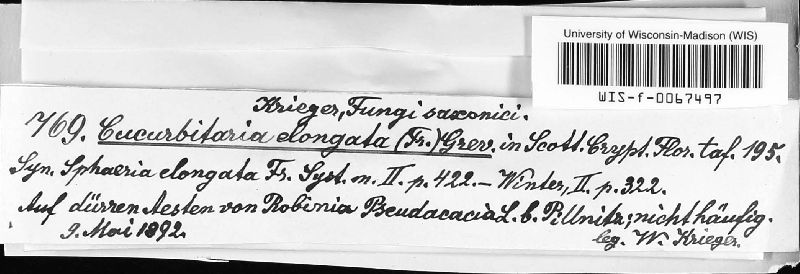 University of Wisconsin-Madison (WIS)
WIS-f-0067497
Krieger, Fungi saxonici.
769. Cucurbitaria elongata (Fr.) Grev. in Scott. Crypt. Flor. taf. 195.
Syn. Sphaeria elongata Fr. Syst. m. II. p. 422. – Winter, II. p. 322.
Auf dürren Aesten von Robinia Pseudacacia L. b. Pillnitz; nicht häufig.
9. Mai 1892.
leg. W. Krieger.